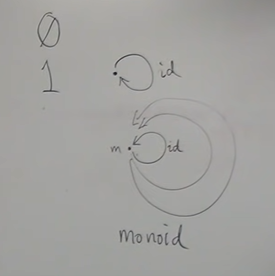 0
1 id
m id
monoid